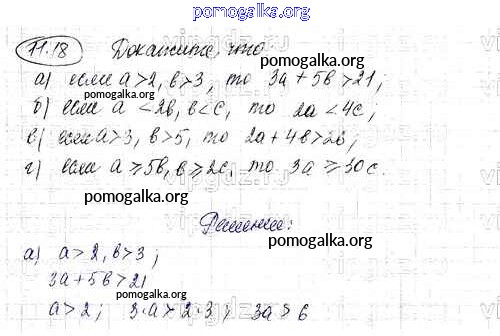 pomogalka.org
71.18 Докажите, что:
а) если a>2, b>3, то 3a+5b>21;
pomogalka.org
б) если a<2b, b<c, то 2a<4c;
в) если a>3, b>5, то 2a+4b>26;
pomogalka.org
г) если a⩾5b, b⩾2c, то 3a⩾30c.
pomogalka.org
Решение:
pomogalka.org
а) a>2, b>3;
3a+5b>21
pomogalka.org
a>2; 3·a>2·3; 3a>6